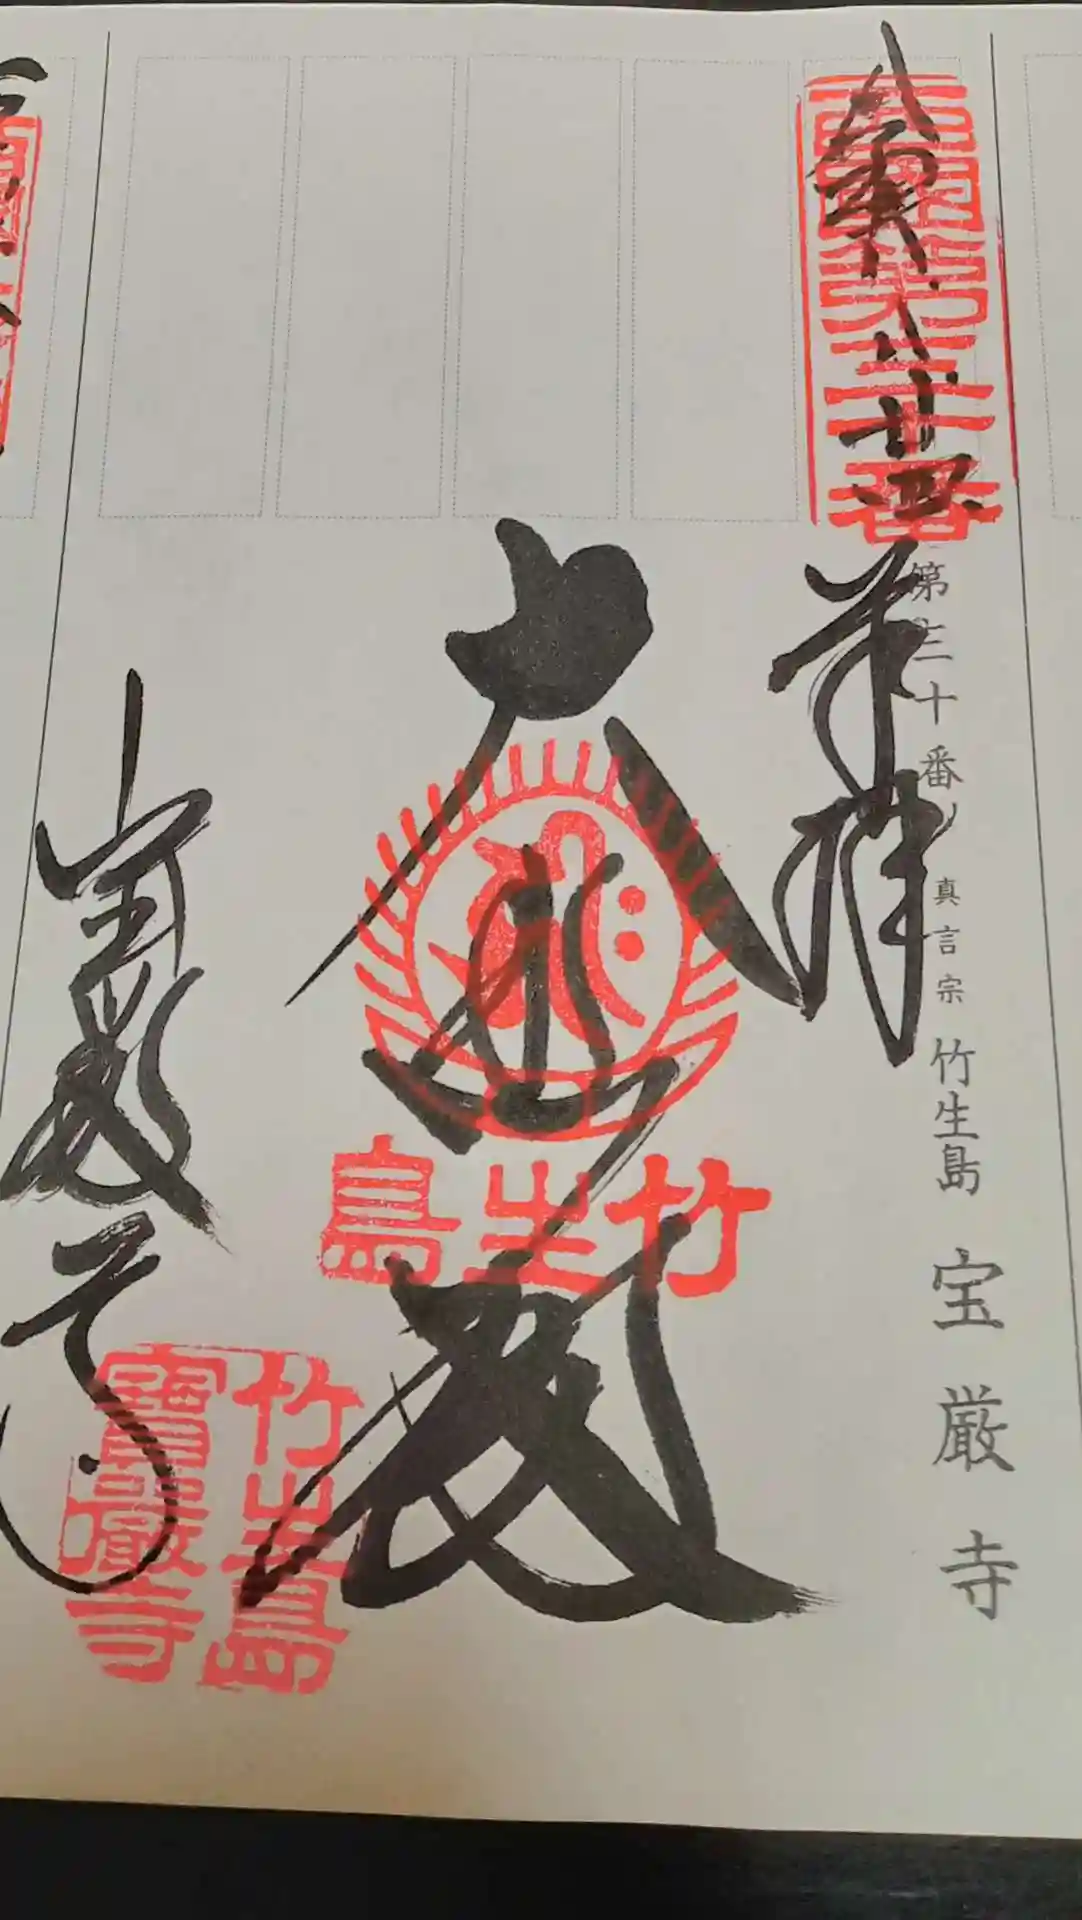 西國第三十番
八 廿四
奉拝
第三十番 真言宗 竹生島 宝厳寺
大悲殿
竹生島
宝厳寺
竹生島
寶嚴寺